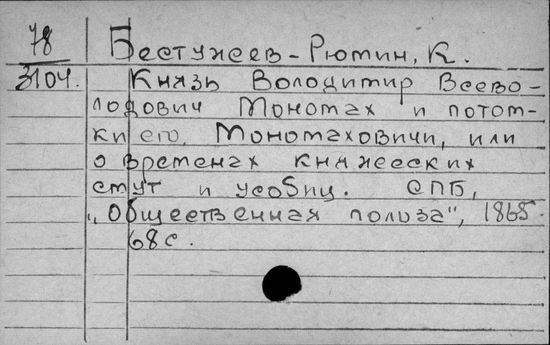 78 Бестужев-Рюмин, К.
3104. Князь Володимир Всево-
лодович Мономах и потом-
ки его, Мономаховичи, или
о временах княжеских
смут и усобиц. СПБ,
„Общественная польза", 1865.
68 с.